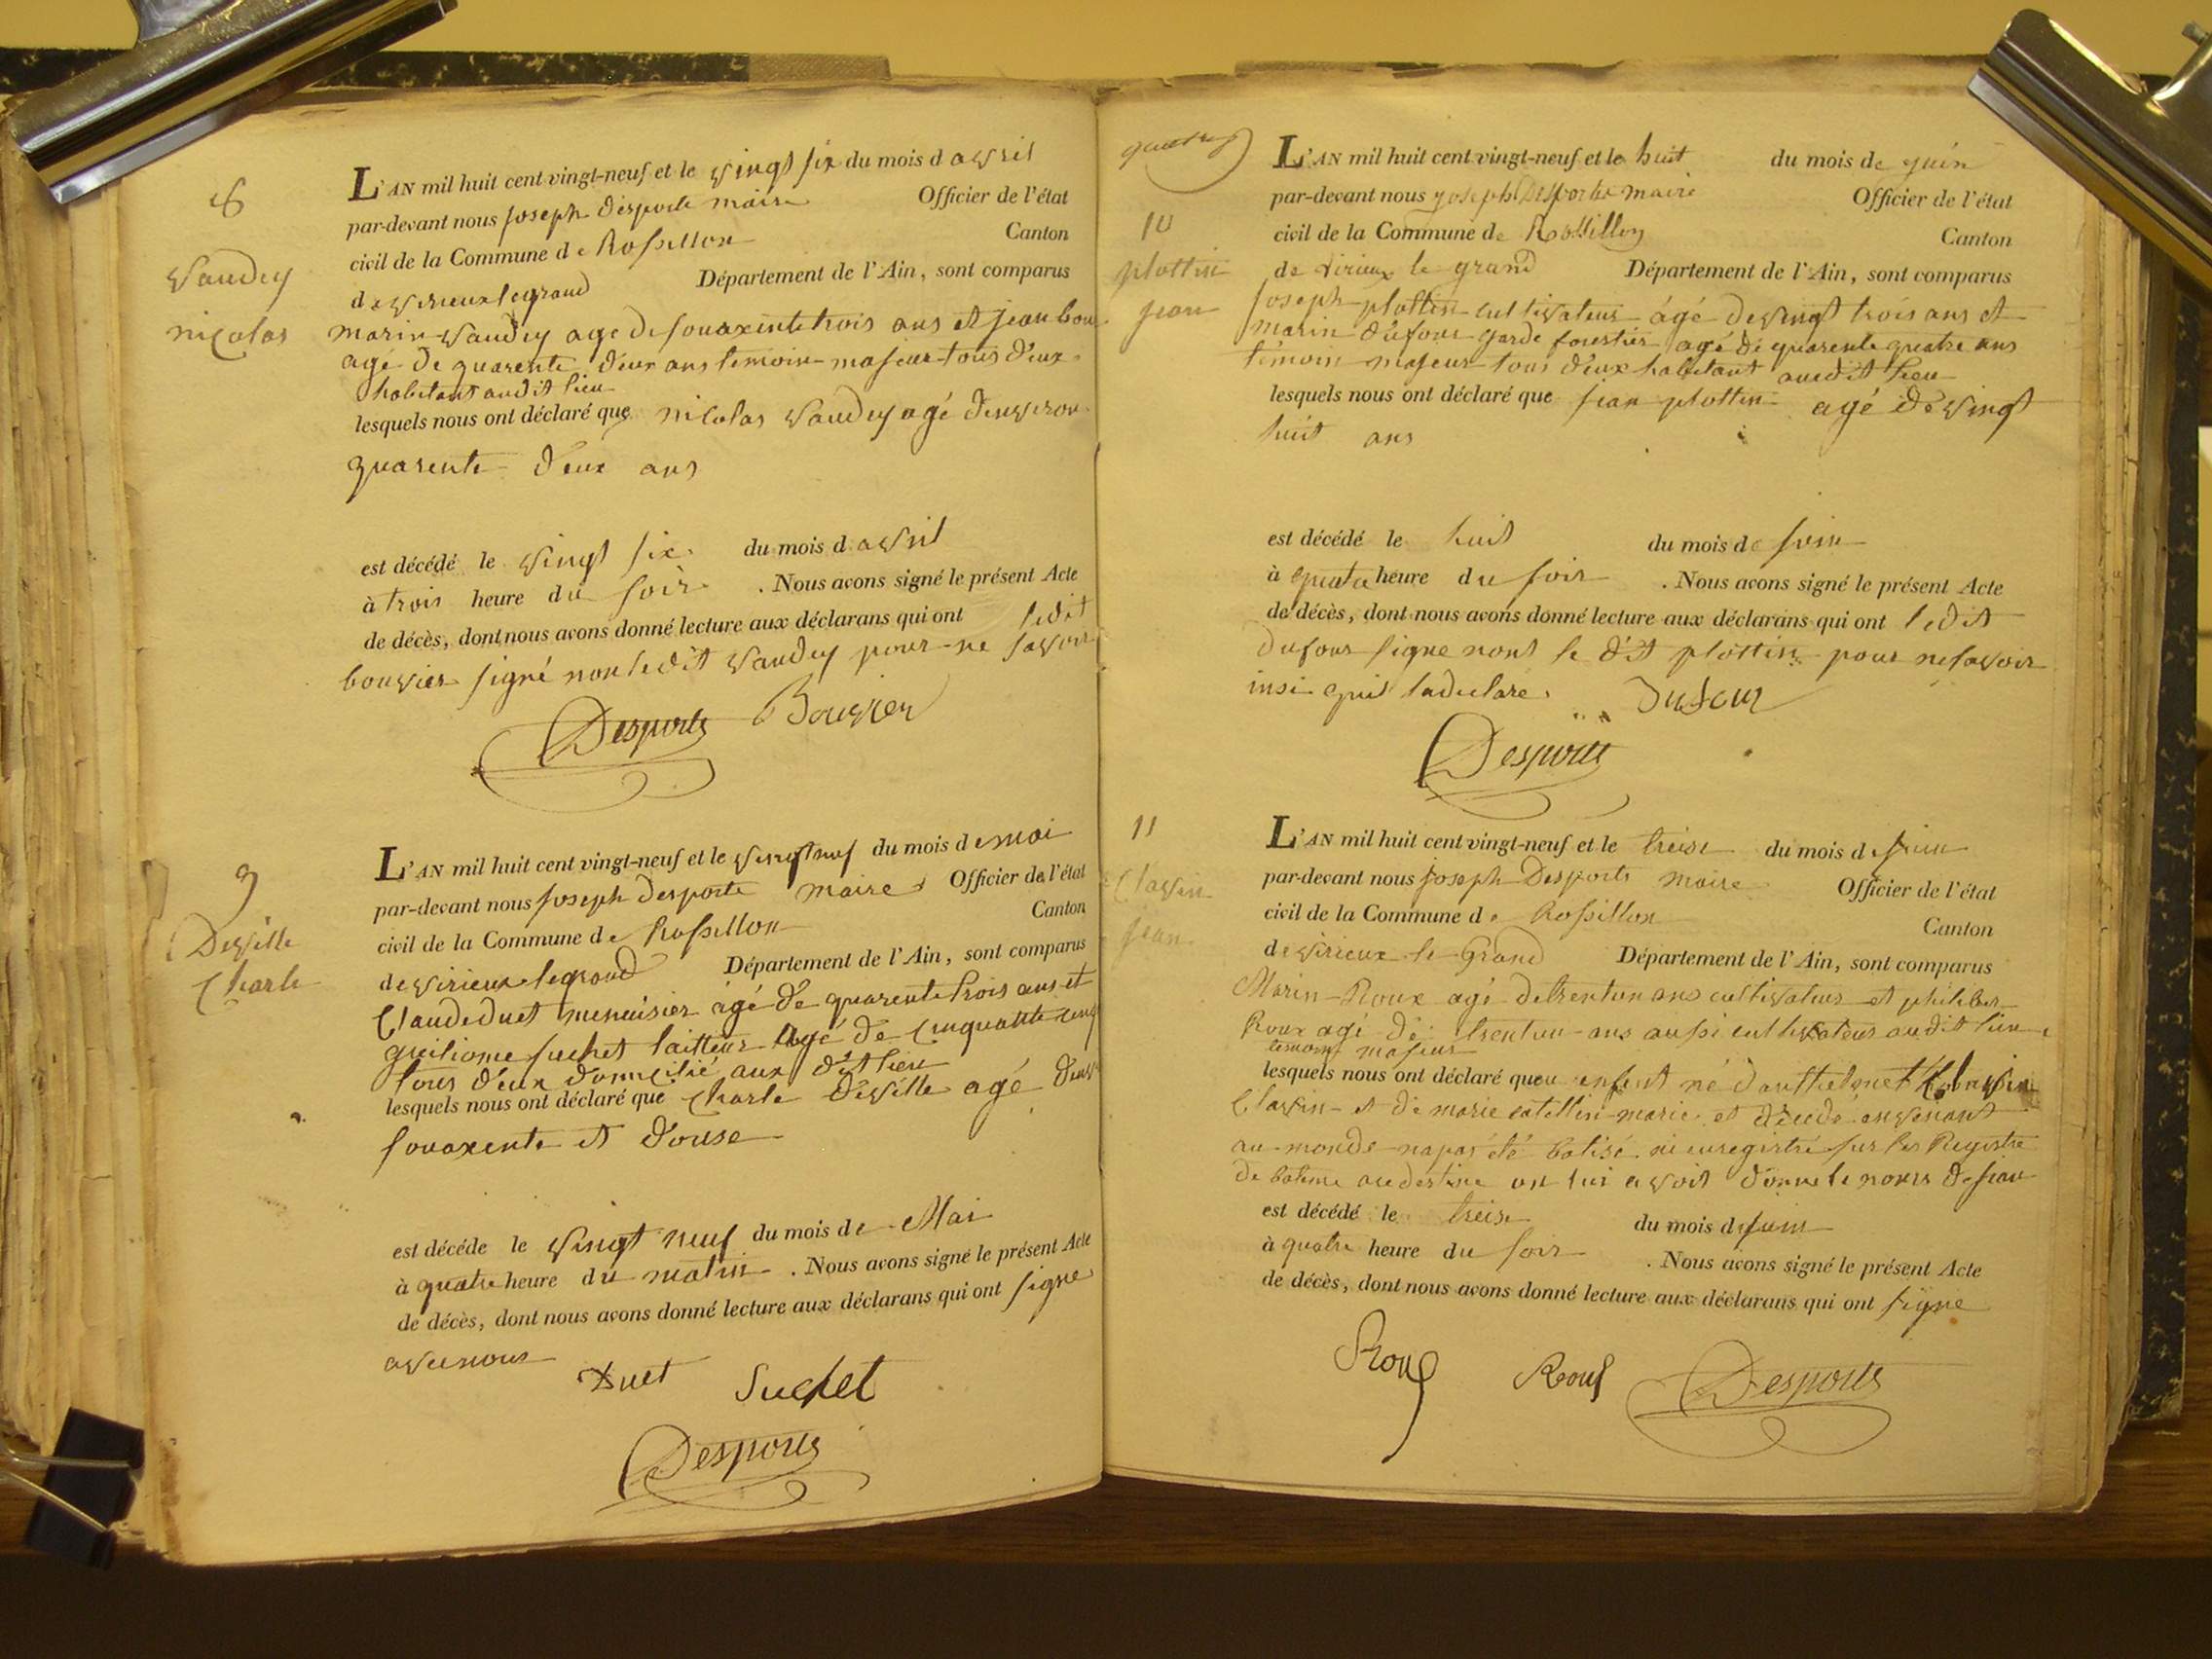 8
Vaudey
nicolas
L'AN mil huit cent vingt-neuf et le vingt six du mois d avril
par-devant nous joseph desporte maire Officier de l'état
civil de la Commune de Rossillon Canton
de virieux legrand Département de l'Ain, sont comparus
marin vaudey age de souaxente trois ans et jean bou
agé de quarente deux ans temoin majeur tous deux
habitant audit lieu
lesquels nous ont déclaré que nicolas vaudey agé denviron
quarente deux ans
est décédé le vingt six du mois d avril
à trois heure du soir . Nous avons signé le présent Acte
de décès, dont nous avons donné lecture aux déclarans qui ont ledit
bouvier signé non ledit vaudey pour ne savoir
Desporte Bouvier
9
Deville
Charle
L'AN mil huit cent vingt-neuf et le vingt neuf du mois de mai
par-devant nous joseph desporte maire Officier de l'état
civil de la Commune de Rossillon Canton
de virieux legrand Département de l'Ain, sont comparus
Claude duet menuisier agé de quarente trois ans et
suchet agé de cinquante cinq
tous deux domicilié aux dit lieu
lesquels nous ont déclaré que Charle deville agé
souaxente et douse
est décédé le vingt neuf du mois de Mai
à quatre heure du matin . Nous avons signé le présent Acte
de décès, dont nous avons donné lecture aux déclarans qui ont signe
avec nous
Duet Suchet
Desporte
10
plottin
jean
L'AN mil huit cent vingt-neuf et le huit du mois de juin
par-devant nous joseph Desporte maire Officier de l'état
civil de la Commune de Rossillon Canton
de virieux le grand Département de l'Ain, sont comparus
joseph plottin cultivateur agé de vingt trois ans et
marin dufour garde forestier agé de quarente quatre ans
temoin majeur tous deux habitant audit lieu
lesquels nous ont déclaré que jean plottin agé de vingt
huit ans
est décédé le huit du mois de juin
à quatre heure du soir . Nous avons signé le présent Acte
de décès, dont nous avons donné lecture aux déclarans qui ont ledit
dufour signe nont le dit plottin pour ne savoir
insi quil la declare. Dufour
Desporte
11
Clavin
jean
L'AN mil huit cent vingt-neuf et le treise du mois de juin
par-devant nous joseph Desporte maire Officier de l'état
civil de la Commune de Rossillon Canton
de virieux le Grand Département de l'Ain, sont comparus
Marin Roux agé de trentun ans cultivateur et philiber
Roux agé de trentun ans aussi cultivateur audit lieu
temoin majeur
lesquels nous ont déclaré que enfent né
Clavin et de marie catellin marie et décédé en venant
au monde na pas été batisé ni enregistré sur les Registre
de bateme on lui avoit donné le nom de jean
est décédé le treise du mois de juin
à quatre heure du soir . Nous avons signé le présent Acte
de décès, dont nous avons donné lecture aux déclarans qui ont signe
Roux Roux Desporte